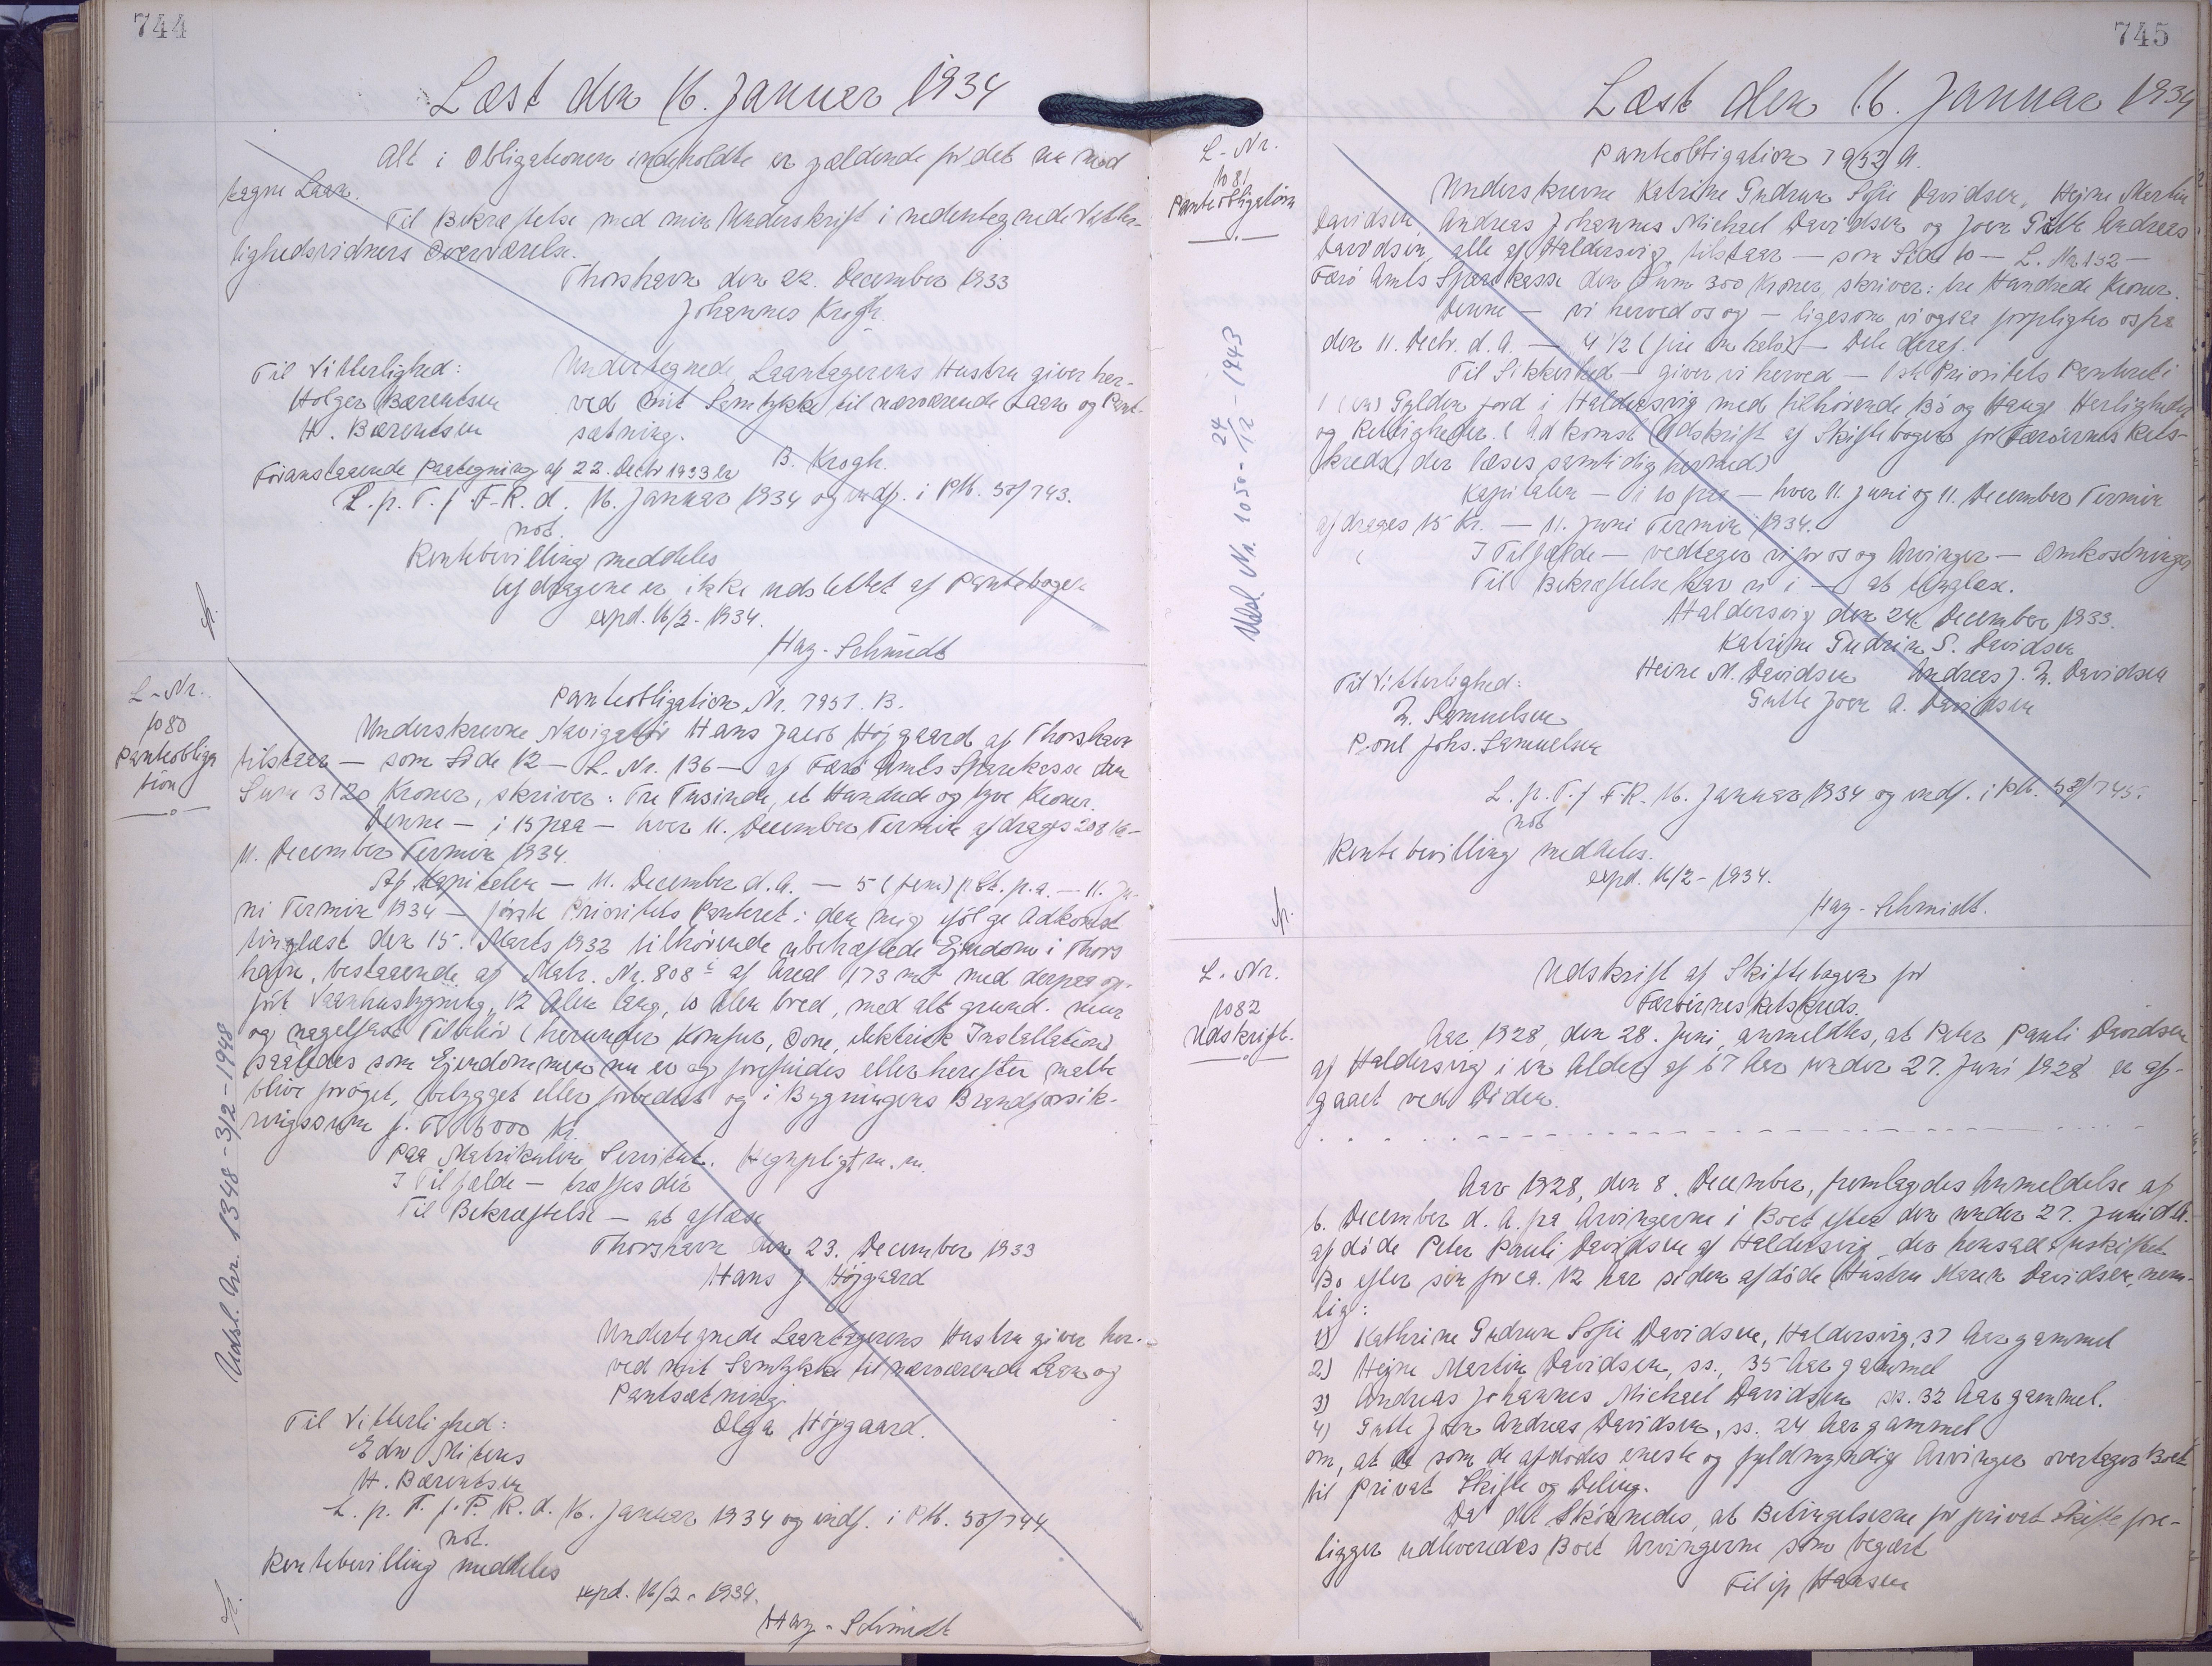 744
Læst den 16. Januar 1934
Alt i Obligationen indeholdte er gældende for det nu mod
tagne Laan.
Til Bekræftelse med min Underskrift i nedentegnede Vitter-
lighedsvidners Overværelse.
Thorshavn den 22. December 1933
Johannes Krogh.
Til Vitterlighed:
Holger Bærentsen
H. Bærentsen
Undertegnede Laantagerens Hustru giver her-
ved mit Samtykke til nærværende Laan og Pant-
sætning.
B. Krogh.
Foranstaaende Paategning af 22. Decbr 1933 er
L. p. T. f F-R. d. 16. Januar 1934 og indf. i PM. 50/743.
not.
Rentebevilling meddeles
Afdragene er ikke udslettet af Pantebogen
expd. 16/2 - 1934.
Hay-Schmidt
L-Nr.
1080
Panteobliga
tion
Panteobligation Nr. 7951. B.
Underskrevne Navigatör Hans Jacob Höjgaard af Thorshavn
tilstaar — som Side 12 — L. Nr. 136 — af Færö Amts Sparekasse den
Sum 3120 Kroner, skriver: Tre Tusinde, et Hundrede og tyve Kroner.
Denne — i 15 paa — hver 11. December Termin afdrages 208 Kr —
11. December Termin 1934.
Af Kapitalen — 11. December d. A. — 5 (fem) p. Ct. p. a. — 11. Ju-
ni Termin 1934 — förste Prioritets Panteret i den mig ifölge Adkomst
tinglæst den 15. Marts 1932 tilhörende ubehæftede Ejendom i Thors
havn, bestaaende af Matr. Nr. 808 af Areal 173 m² med derpaa op-
fört Vaanhusbygning, 12 Alen lang, 10 Alen bred, med alt grund- mur
og nagelfast Tilbehör (herunder Komfur, Ovne, elektrisk Installation)
saaledes som Ejendommen nu er og forefindes eller herefter maatte
blive foröget, bebygget eller forbedret og i Bygningens Brandforsik-
ringssum 6000 Kr.
Paa Matrikulen Servitut. Hegnpligt m. m.
I Tilfælde — træffes dér
Til Bekræftelse — at aflæse
Thorshavn den 23. December 1933
Hans J Höjgaard
Undertegnede Laantagerens Hustru giver her-
ved mit Samtykke til nærværende Laan og
Pantsætning.
Olga Höjgaard.
Til Vitterlighed:
Edw Mitens
H. Bærentsen
L. p. T. f. F. R. d. 16. Januar 1934 og indf. i PM. 50/744
not.
Rentebevilling meddeles
expd. 16/2 - 1934.
Hay-Schmidt
Udsl. Nr. 1348 - 3/2 - 1948
745
Læst den 16. Januar 1934
L-Nr.
1081
Panteobligation
Panteobligation 7952 A.
Underskrevne Katrine Gudrun Sofie Davidsen, Hejne Martin
Davidsen, Andreas Johannes Michael Davidsen og Joen Gutte Andreas
Davidsen, alle af Haldersvig, tilstaar — som Side 10 — L. Nr 132 —
Færö Amts Sparekasse den Sum 300 Kroner, skriver: tre Hundrede Kroner.
Denne — vi herved os og — ligesom vi ogsaa forpligter os fra
den 11. Decbr. d. A. — 4 1/2 (fire en halv) — Dele deraf.
Til Sikkerhed — giver vi herved — 1ste Prioritets Panteret i
1 (en) Gylden Jord i Haldersvig med tilhörende Bö og Hauge Herligheder
og Rettigheder. (Adkomst Udskrift af Skiftebogen for Færöernes Rets-
kreds, der læses samtidig hermed)
Kapitalen — i 10 paa — hver 11. Juni og 11. December Termin
afdrages 15 Kr. — 11. Juni Termin 1934.
I Tilfælde — vedtager vi for os og Arvinger — Omkostninger
Til Bekræftelse har vi i — at tinglæse.
Haldersvig den 24. December 1933.
Katrine Gudrun S. Davidsen
Hejne M. Davidsen Andreas J. M. Davidsen
Gutte Joen A. Davidsen
Til Vitterlighed:
M. Samuelsen
Poul Johs. Samuelsen
L. p. T. f F R. 16. Januar 1934 og indf. i PM. 50/745.
not
Rentebevilling meddeles.
expd. 16/2 - 1934.
Hay-Schmidt.
Udsl. Nr. 1050 - 24/12 - 1943
L. Nr.
1082
Udskrift.
Udskrift af Skiftebogen for
Færöernes Retskreds.
Aar 1928, den 28. Juni, anmeldtes, at Peter Pauli Davidsen
af Haldersvig i en Alder af 67 Aar under 27. Juni 1928 er af-
gaaet ved Döden.
Aar 1928, den 8. December, fremlagdes Anmeldelse af
6. December d. A. fra Arvingerne i Boet efter den under 27. Juni d. A.
afdöde Peter Pauli Davidsen af Haldersvig, der hensad i uskiftet
Bo efter sin for ca. 12 Aar siden afdöde Hustru Maren Davidsen, nem-
lig:
1) Kathrine Gudrun Sofie Davidsen, Haldersvig, 37 Aar gammel
2) Hejne Martin Davidsen, ss., 35 Aar gammel
3) Andreas Johannes Michael Davidsen ss. 32 Aar gammel.
4) Gutte Joen Andreas Davidsen, ss. 24 Aar gammel
om, at de som de afdödes eneste og fuldmyndige Arvinger overtager Boet
til Privat Skifte og Deling.
Da det skönnedes, at Betingelserne for privat Skifte fore-
ligger udleveredes Boet Arvingerne som begært
Filip Hansen